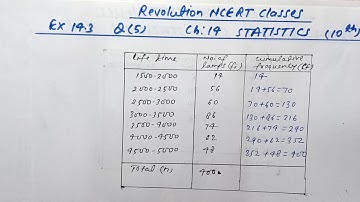 Revolution NCERT Classes
Ex 14.3 Q(5) Ch:14 STATISTICS (10th)
Life time No. of lamps (fi) cumulative frequency (Cf)
1500-2000 14 14
2000-2500 56 14+56=70
2500-3000 60 70+60=130
3000-3500 86 130+86=216
3500-4000 74 216+74=290
4000-4500 62 290+62=352
4500-5000 48 352+48=400
Total (n) 400